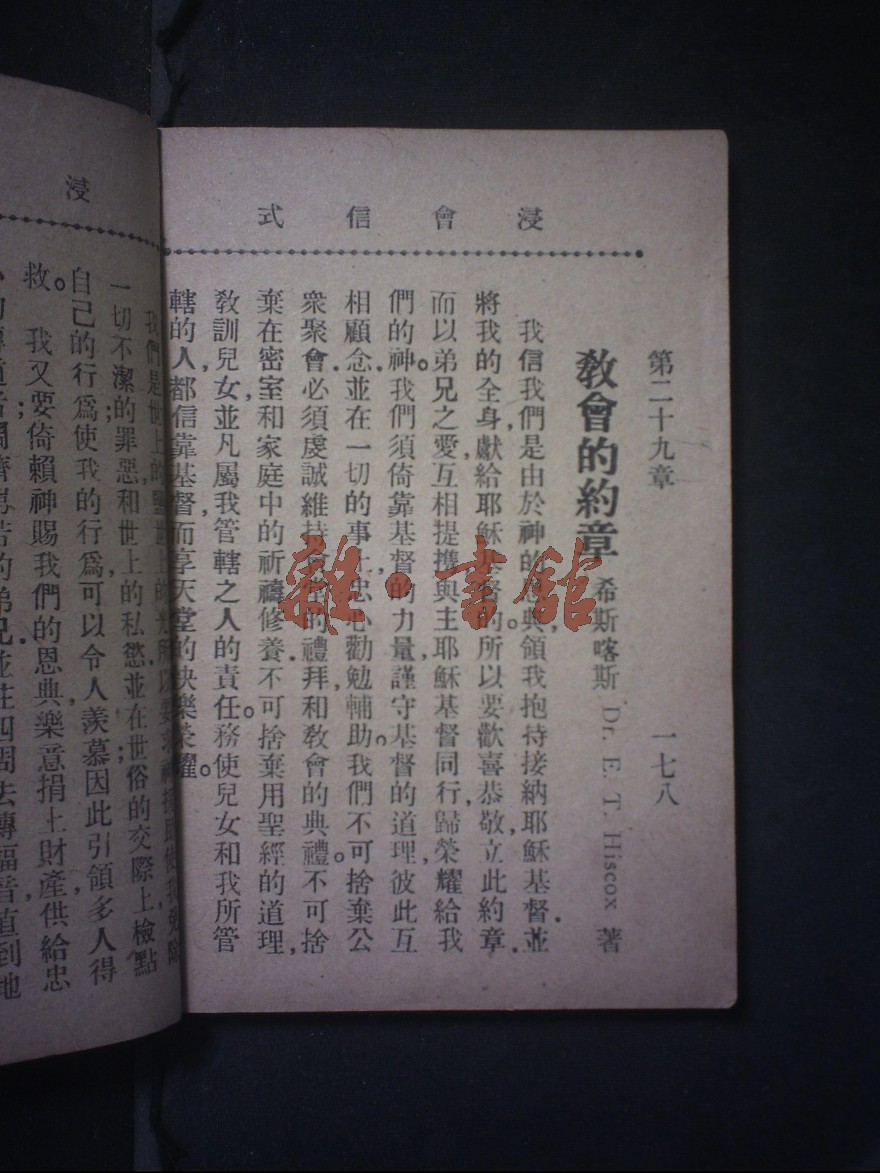 浸會信式
第二十九章 一七八
教會的約章 希斯喀斯 Dr. E. T. Hiscox 著
我信我們是由於神的恩典。領我抱持接納耶穌基督.並
將我的全身獻給耶穌基督的所以要歡喜恭敬立此約章.
而以弟兄之愛互相提攜與主耶穌基督同行歸榮耀給我
們的神。我們須倚靠基督的力量謹守基督的道理彼此互
相顧念.並在一切的事上忠心勸勉輔助。我們不可捨棄公
衆聚會.必須虔誠維持會堂的禮拜和敎會的典禮。不可捨
棄在密室和家庭中的祈禱修養.不可捨棄用聖經的道理,
敎訓兒女並凡屬我管轄之人的責任。務使兒女和我所管
轄的人,都信靠基督,而享天堂的快樂榮耀。
浸
我們是世上的
一切不潔的罪惡;和世上的私慾並在世俗的交際上檢點
自己的行爲使我的行爲可以令人羨慕因此引領多人得
救。我又要倚賴神賜我們的恩典樂意捐上財產供給忠
的弟兄並在四周去傳福音直到地
雜·書館